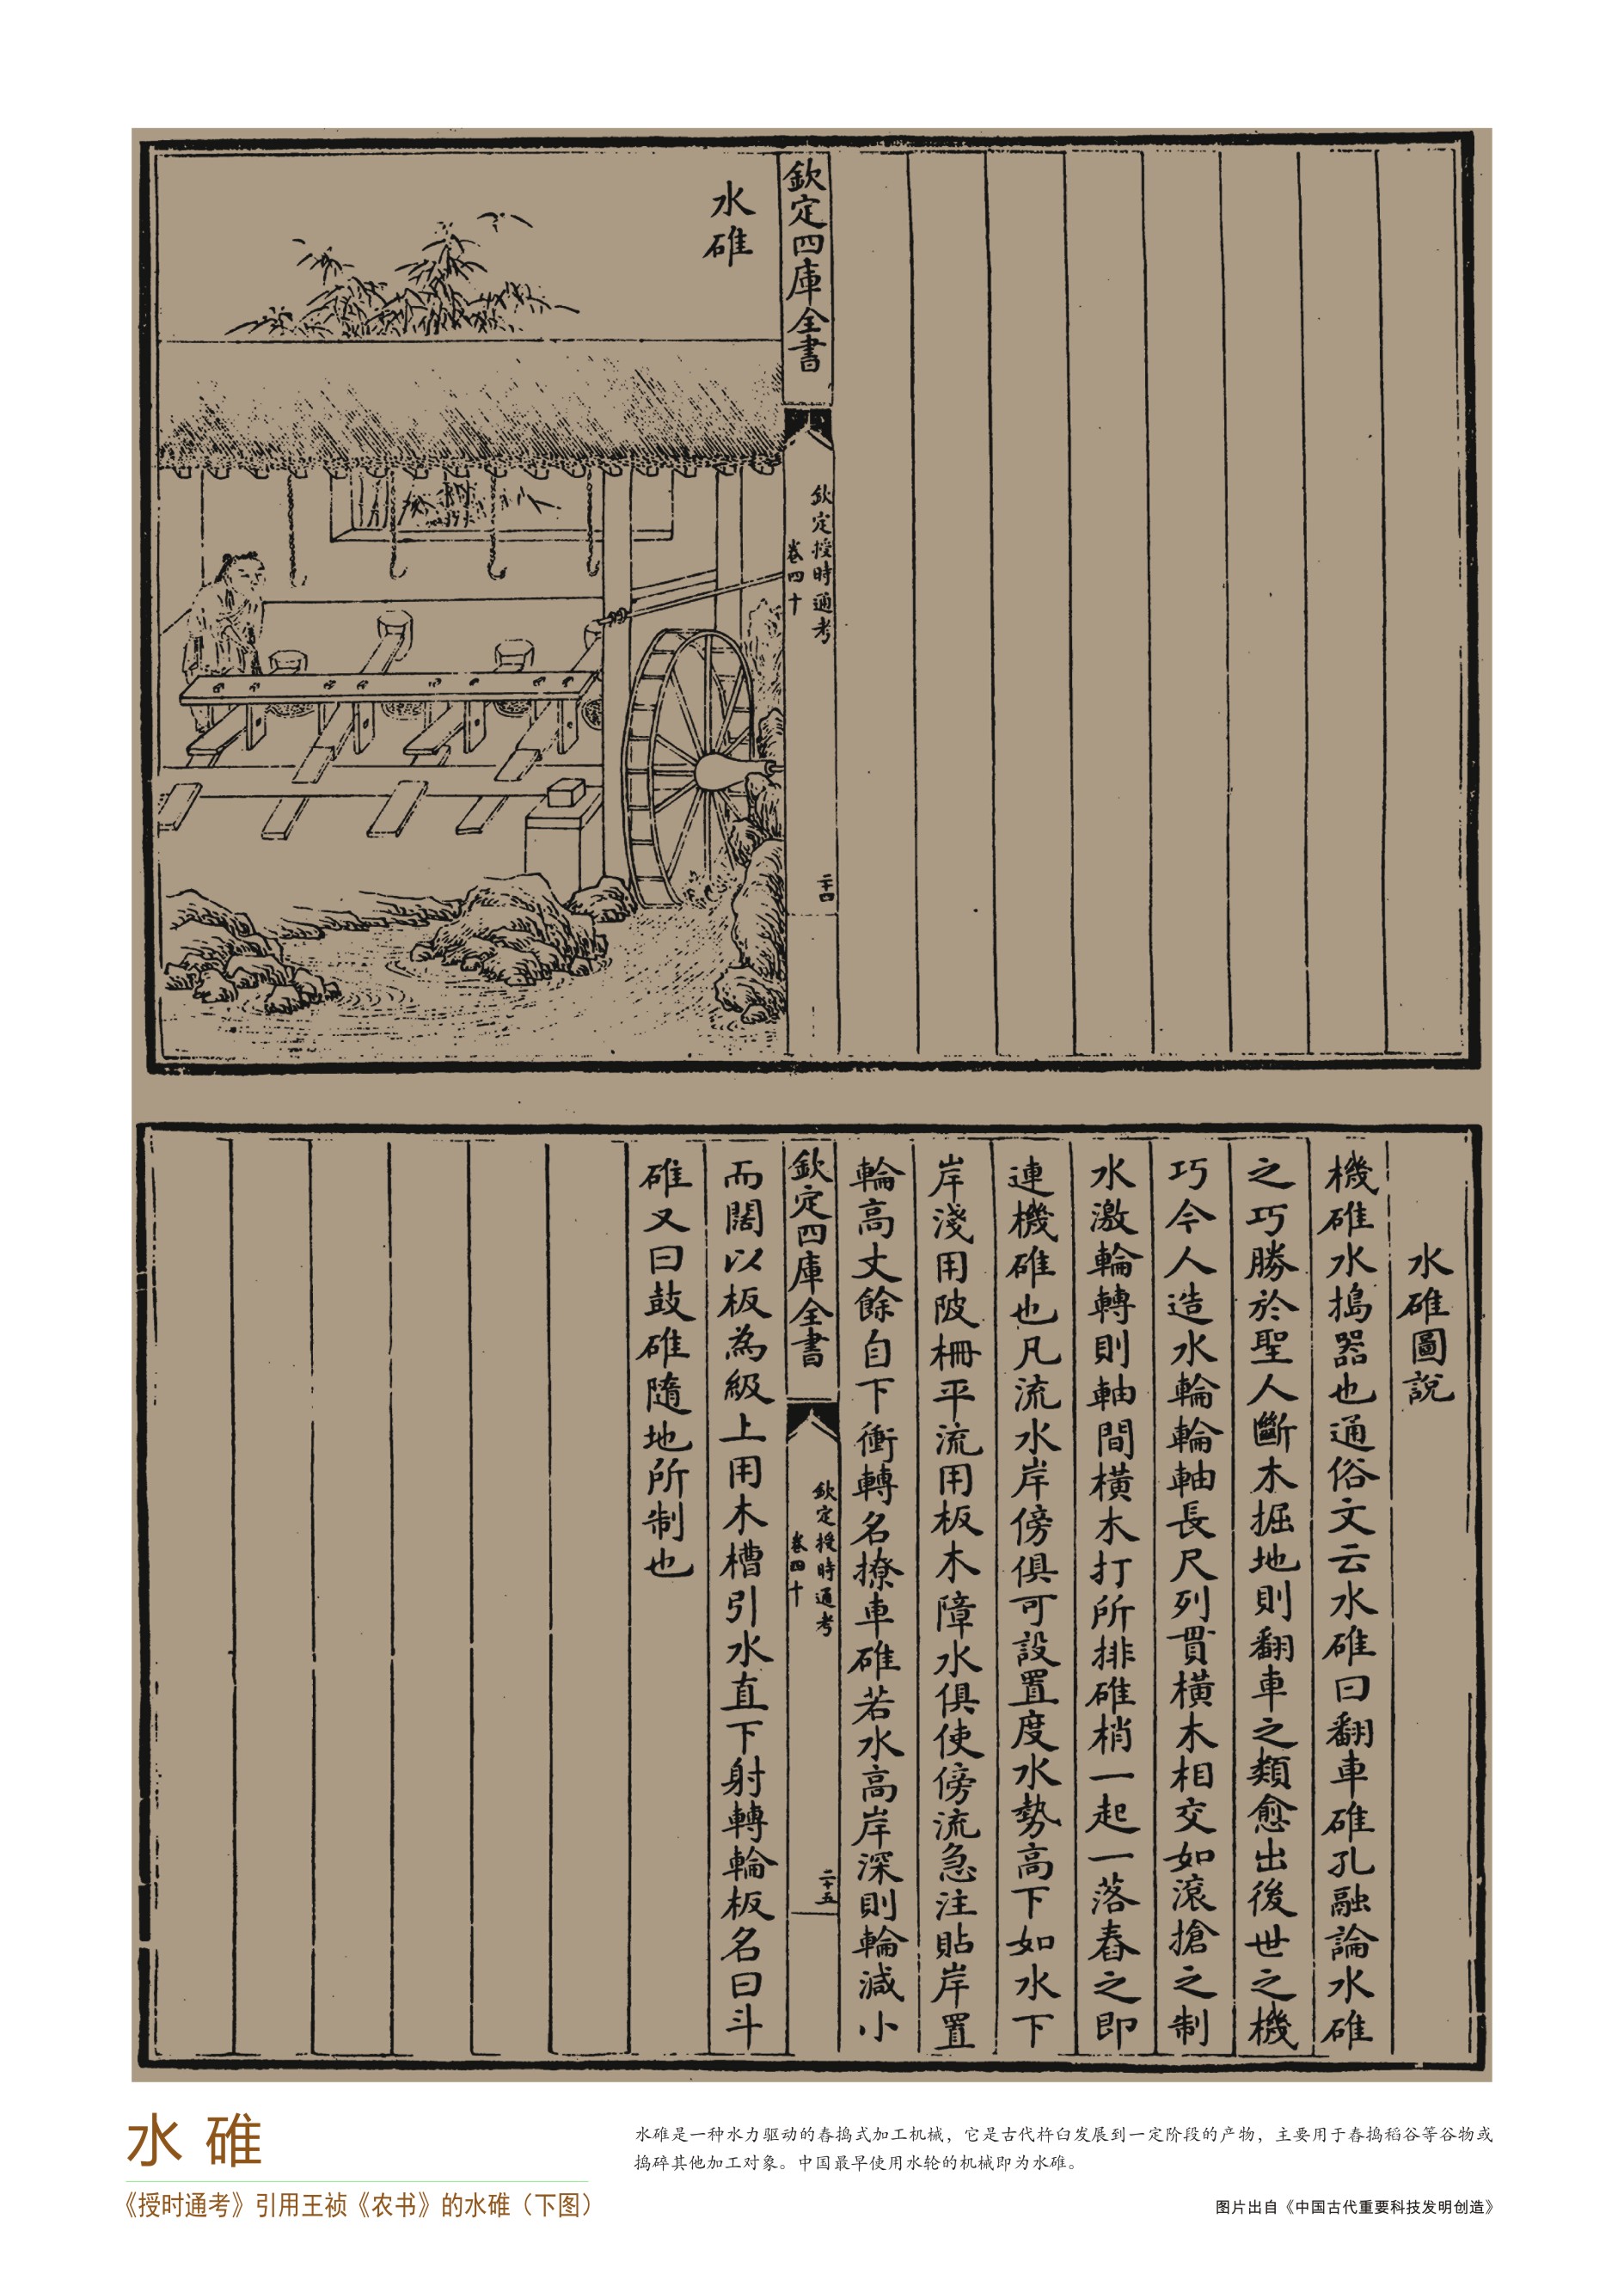 水碓
欽定四庫全書
欽定授時通考
卷四十
二十四
水碓圖說
機碓水搗器也通俗文云水碓曰翻車碓孔融論水碓
之巧勝於聖人斷木掘地則翻車之類愈出後世之機
巧今人造水輪輪軸長尺列貫橫木相交如滾搶之制
水激輪轉則軸間橫木打所排碓梢一起一落舂之即
連機碓也凡流水岸傍俱可設置度水勢高下如水下
岸淺用陂柵平流用板木障水俱使傍流急注貼岸置
輪高丈餘自下衝轉名撩車碓若水高岸深則輪減小
欽定四庫全書
欽定授時通考
卷四十
二十五
而闊以板為級上用木槽引水直下射轉輪板名曰斗
碓又曰鼓碓隨地所制也
水碓
《授时通考》引用王祯《农书》的水碓（下图）
水碓是一种水力驱动的舂捣式加工机械，它是古代杵臼发展到一定阶段的产物，主要用于舂捣稻谷等谷物或
捣碎其他加工对象。中国最早使用水轮的机械即为水碓。
图片出自《中国古代重要科技发明创造》